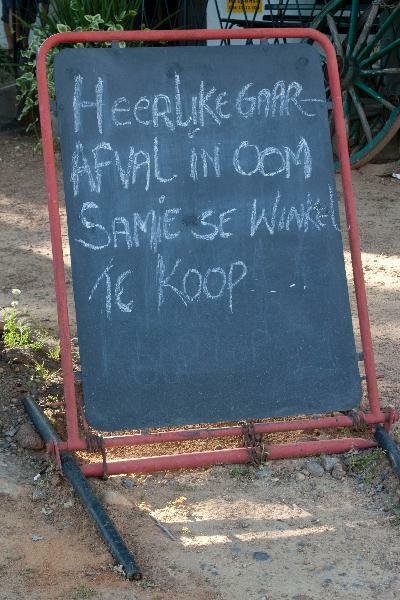 HEERLIKE GAAR-
AFVAL IN OOM
SAMIE SE WINKEL
TE KOOP...